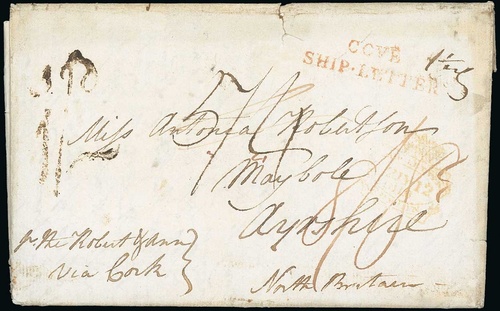 COVE
SHIP-LETTER
Miss Antonia Robertson
Maybole
Ayrshire
North Britain
pr the Robert & Ann
via Cork